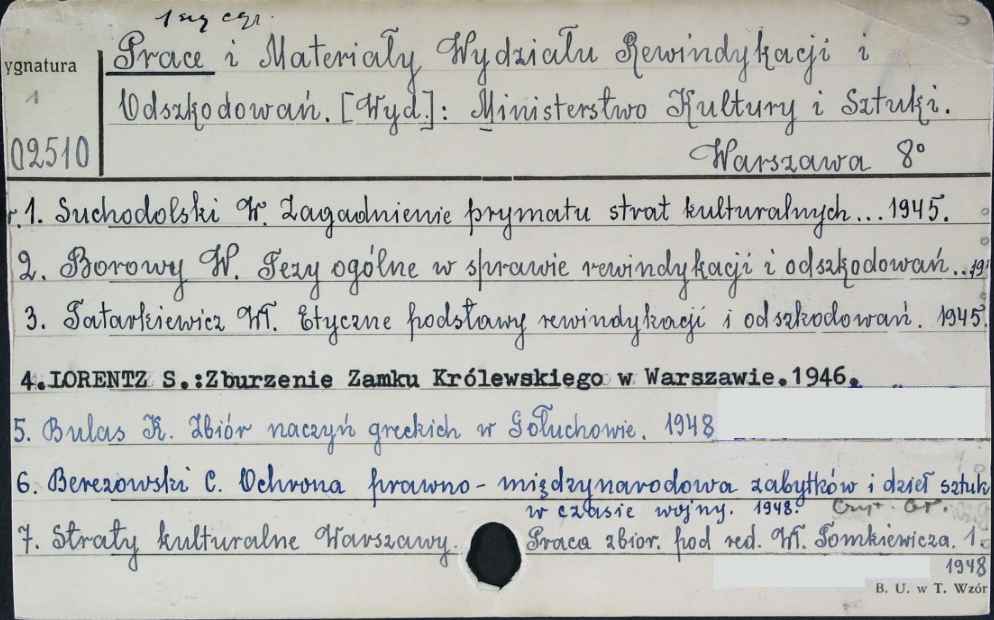 1 eg czyt.
Prace i Materiały Wydziału Rewindykacji i
ygnatura
1
Odszkodowań. [Wyd.]: Ministerstwo Kultury i Sztuki.
02510
Warszawa 8°
r. 1. Suchodolski W. Zagadnienie prymatu strat kulturalnych... 1945.
2. Borowy W. Tezy ogólne w sprawie rewindykacji i odszkodowań... 19
3. Tatarkiewicz Wł. Etyczne podstawy rewindykacji i odszkodowań. 1945.
4. LORENTZ S.:Zburzenie Zamku Królewskiego w Warszawie.1946.
5. Bulas K. Zbiór naczyń greckich w Gołuchowie. 1948
6. Berezowski C. Ochrona prawno-międzynarodowa zabytków i dzieł sztuk
w czasie wojny. 1948.
7. Straty kulturalne Warszawy. Praca zbior. pod red. Wł. Tomkiewicza. 1.
1948
B. U. w T. Wzór